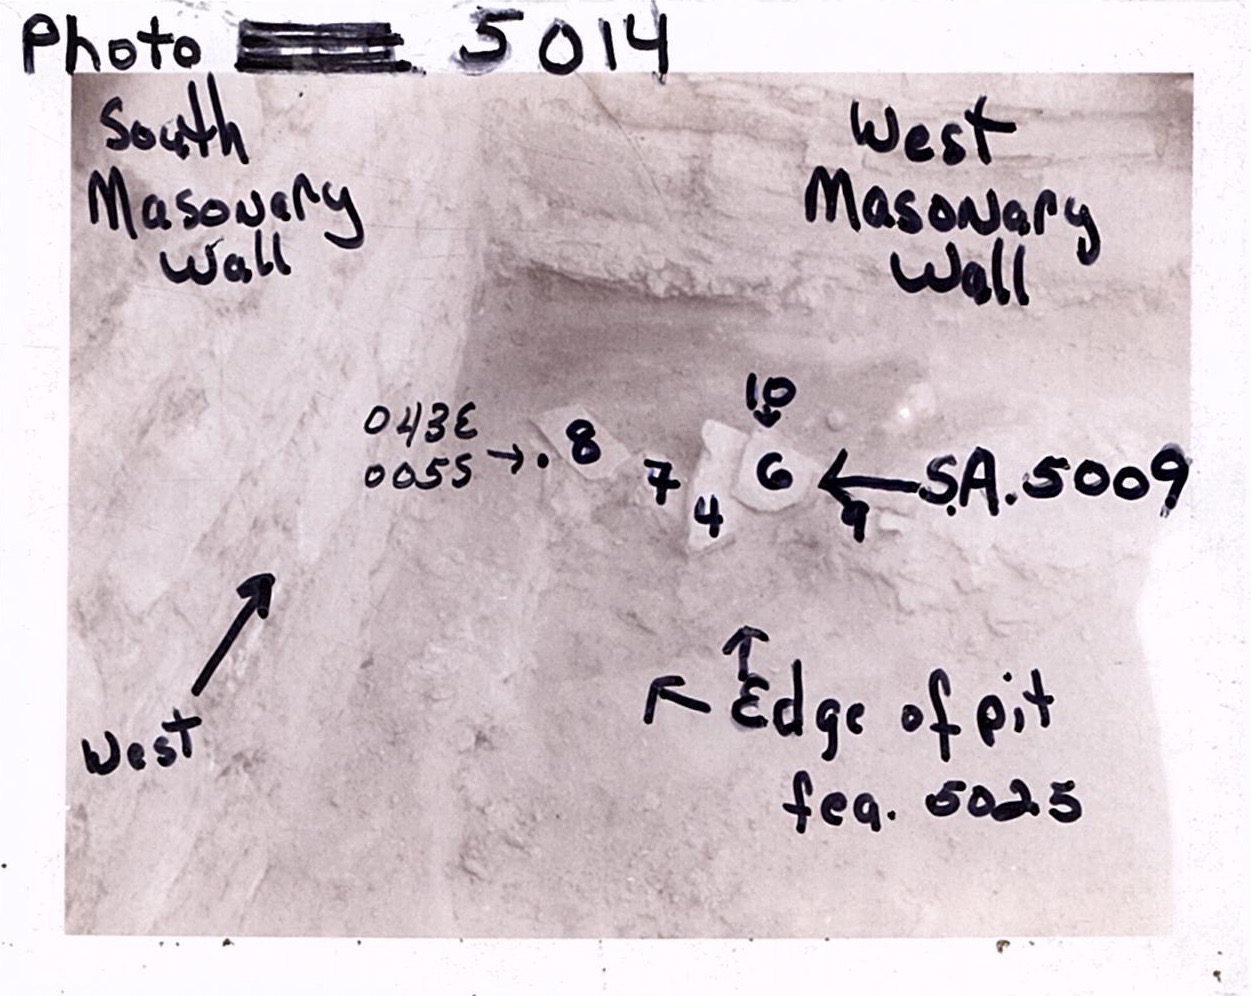 Photo 5014
South
Masonary
Wall
West
Masonary
Wall
10
043E
005S → . 8
7
4
6
← S.A. 5009
9
West
Edge of pit
fea. 5025